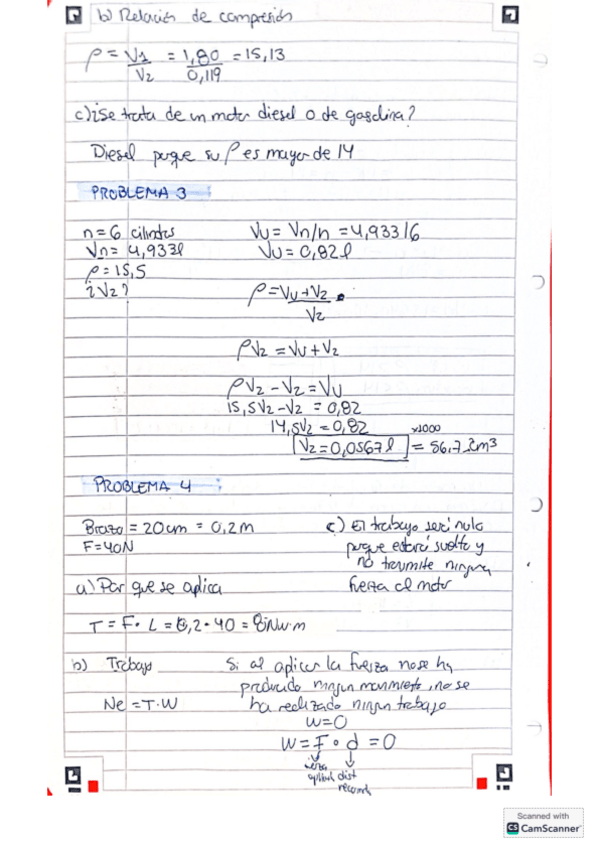 b) Relación de compresión
ρ = V1/V2 = 1,80/0,119 = 15,13
c) ¿Se trata de un motor diesel o de gasolina?
Diesel porque su ρ es mayor de 14
PROBLEMA 3
n = 6 cilindros
Vn = 4,933l
ρ = 15,5
¿V2?
Vu = Vn/n = 4,933/6
Vu = 0,82l
ρ = Vu + V2 / V2
ρV2 = Vu + V2
ρV2 - V2 = Vu
15,5V2 - V2 = 0,82
14,5V2 = 0,82
x1000
V2 = 0,0567l = 56,72cm³
PROBLEMA 4
Brazo = 20cm = 0,2m
F = 40N
a) Par que se aplica
T = F · L = 0,2 · 40 = 8Nw·m
c) El trabajo será nulo
porque estará suelto y
no transmite ninguna
fuerza al motor
b) Trabajo
Ne = T·W
Si al aplicar la fuerza no se ha
producido ningún movimiento, no se
ha realizado ningún trabajo
W=0
W = F · d = 0
dist
Scanned with
CS CamScanner